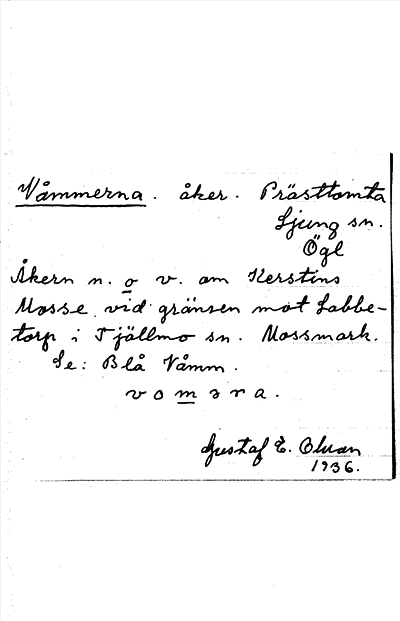 Våmmerna. åker. Prästtomta
Ljung sn.
Ögl
Åkern n. o v. om Kerstins
Mosse vid gränsen mot Labbe-
torp i Tjällmo sn. Mossmark.
Se: Blå Våmm.
voməra.
Gustaf E. Olsson
1936.